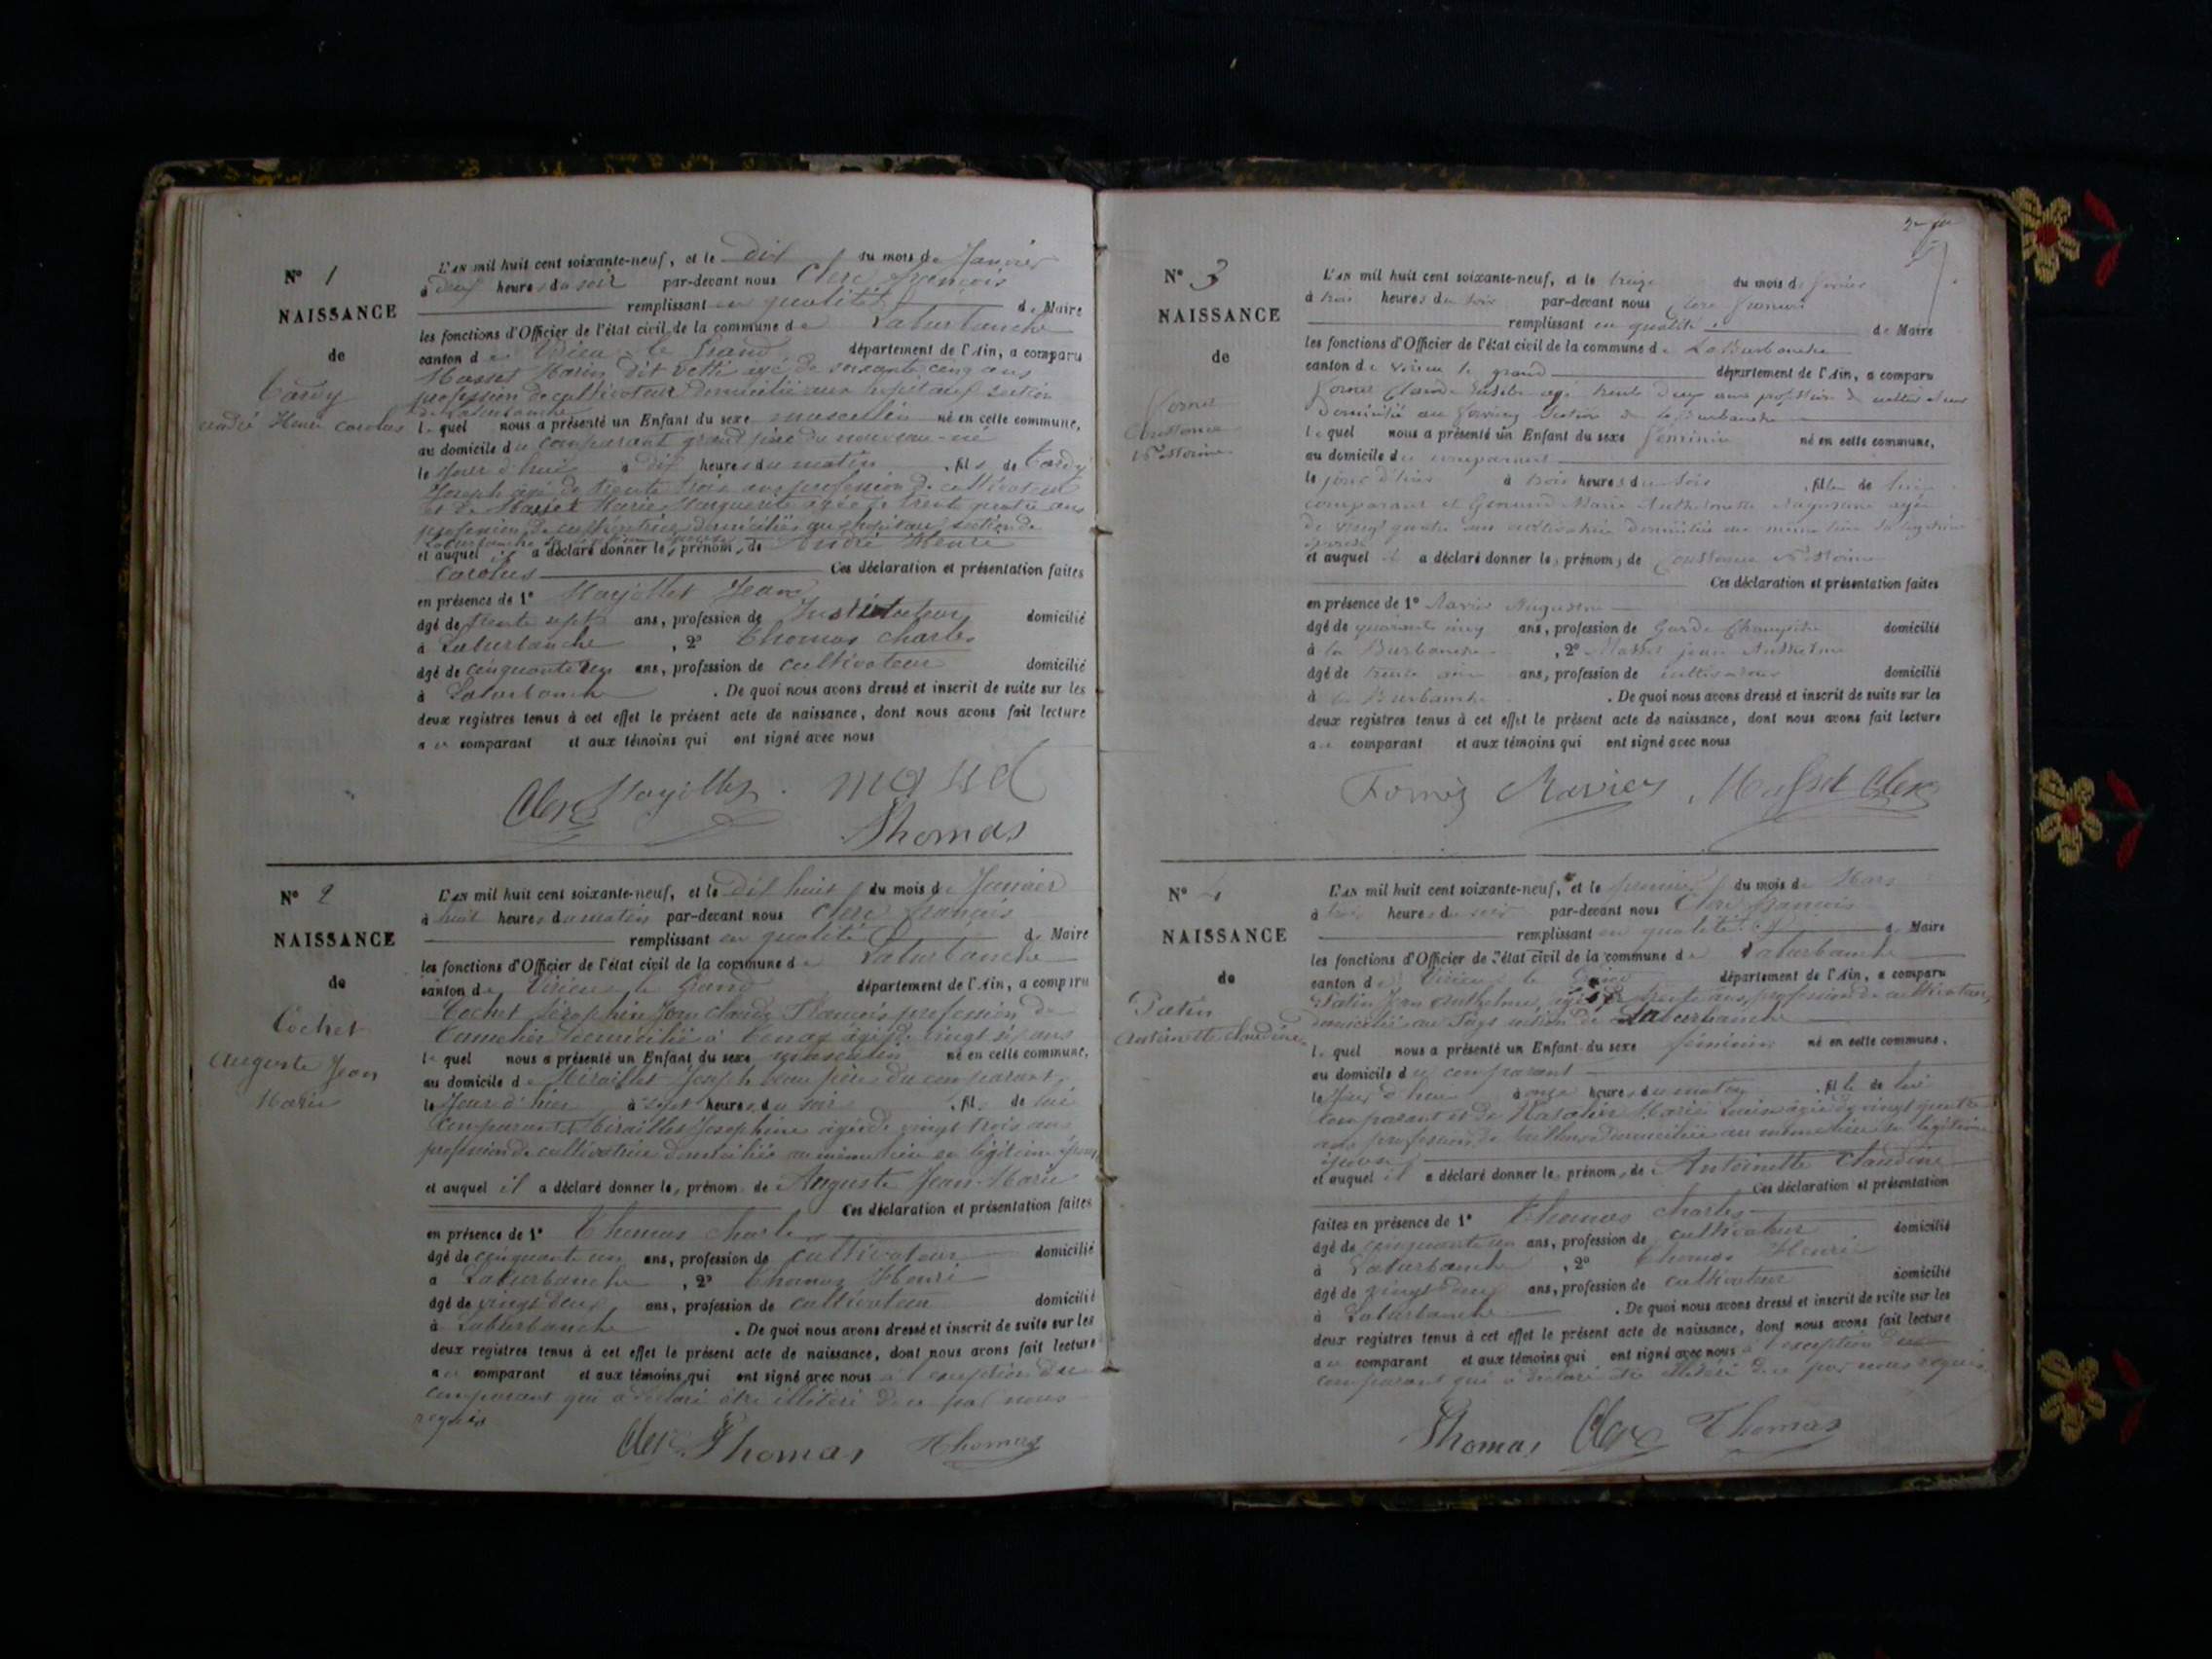 N° 1
NAISSANCE
de
Tardy
André Henri Carolus
L'AN mil huit cent soixante-neuf, et le dix du mois de Janvier
à deux heures du soir par-devant nous Clerc François
remplissant en qualité de Maire
les fonctions d'Officier de l'état civil de la commune de Laburbanche
canton de Virieu le Grand département de l'Ain, a comparu
Masset Marin dit âgé de soixante cinq ans
profession de cultivateur domicilié aux section
de Laburbanche
lequel nous a présenté un Enfant du sexe masculin né en cette commune,
au domicile du comparant grand père du nouveau-né
le jour d'hui à dix heures du matin, fils de Tardy
Joseph âgé de trente trois ans profession de cultivateur
et de Masset Marie Marguerite âgée de trente quatre ans
profession de cultivatrice domiciliés section de
Laburbanche
et auquel il a déclaré donner les prénoms de André Henri
Carolus Ces déclaration et présentation faites
en présence de 1° Mayollet Jean
âgé de trente sept ans, profession de Instituteur domicilié
à Laburbanche, 2° Thomas Charles
âgé de cinquante un ans, profession de cultivateur domicilié
à Laburbanche. De quoi nous avons dressé et inscrit de suite sur les
deux registres tenus à cet effet le présent acte de naissance, dont nous avons fait lecture
au comparant et aux témoins qui ont signé avec nous
Clerc Mayollet
Thomas
N° 2
NAISSANCE
de
Cochet
Auguste Jean
Marie
L'AN mil huit cent soixante-neuf, et le dix huit du mois de Janvier
à huit heures du matin par-devant nous Clerc François
remplissant en qualité de Maire
les fonctions d'Officier de l'état civil de la commune de Laburbanche
canton de Virieu le Grand département de l'Ain, a comparu
Cochet Séraphin Jean Claude François profession de
domicilié à Tenay âgé de vingt six ans
lequel nous a présenté un Enfant du sexe masculin né en cette commune,
au domicile de Miraillet Joseph beau père du comparant
le jour d'hier à sept heures du soir, fils de lui
comparant et Miraillet Josephine âgée de vingt trois ans
profession de cultivatrice domiciliés au même lieu sa légitime épouse
et auquel il a déclaré donner les prénoms de Auguste Jean-Marie
Ces déclaration et présentation faites
en présence de 1° Thomas Charles
âgé de cinquante un ans, profession de cultivateur domicilié
à Laburbanche, 2° Thomas Henri
âgé de vingt deux ans, profession de cultivateur domicilié
à Laburbanche. De quoi nous avons dressé et inscrit de suite sur les
deux registres tenus à cet effet le présent acte de naissance, dont nous avons fait lecture
au comparant et aux témoins qui ont signé avec nous à l'exception du
comparant qui a déclaré être illitéré de ce par nous
requis
Clerc Thomas Thomas
N° 3
NAISSANCE
de
Fornet
L'AN mil huit cent soixante-neuf, et le treize du mois de
à trois heures du soir par-devant nous Clerc François
remplissant en qualité de Maire
les fonctions d'Officier de l'état civil de la commune de La Burbanche
canton de Virieu le grand département de l'Ain, a comparu
Fornet Claude âgé trente deux ans profession de cultivateur
domicilié au section de la Burbanche
lequel nous a présenté un Enfant du sexe féminin né en cette commune,
au domicile du comparant
le jour d'hier à trois heures du soir, fille de lui
comparant et Marie Anthelmette âgée
de vingt quatre ans cultivatrice domiciliée au même lieu sa légitime
épouse
et auquel il a déclaré donner les prénoms de
Ces déclaration et présentation faites
en présence de 1° Ravier
âgé de quarante cinq ans, profession de Garde Champêtre domicilié
à la Burbanche, 2° Masset jean Anthelme
âgé de trente ans, profession de cultivateur domicilié
à la Burbanche. De quoi nous avons dressé et inscrit de suite sur les
deux registres tenus à cet effet le présent acte de naissance, dont nous avons fait lecture
au comparant et aux témoins qui ont signé avec nous
Ravier Masset Clerc
N° 4
NAISSANCE
de
Patin
Antoinette Claudine
L'AN mil huit cent soixante-neuf, et le premier du mois de Mars
à trois heures du soir par-devant nous Clerc François
remplissant en qualité de Maire
les fonctions d'Officier de l'état civil de la commune de Laburbanche
canton de Virieu le Grand département de l'Ain, a comparu
Patin Jean Anthelme âgé de trente ans profession de cultivateur,
domicilié au section de Laburbanche
lequel nous a présenté un Enfant du sexe féminin né en cette commune,
au domicile du comparant
le jour d'hui à onze heures du matin, fille de lui
comparant et de Marie Louise âgée de vingt quatre
ans profession de domiciliée au même lieu sa légitime
épouse
et auquel il a déclaré donner les prénoms de Antoinette Claudine
Ces déclaration et présentation
faites en présence de 1° Thomas Charles
âgé de cinquante un ans, profession de cultivateur domicilié
à Laburbanche, 2° Thomas Henri
âgé de vingt deux ans, profession de cultivateur domicilié
à Laburbanche. De quoi nous avons dressé et inscrit de suite sur les
deux registres tenus à cet effet le présent acte de naissance, dont nous avons fait lecture
au comparant et aux témoins qui ont signé avec nous à l'exception du
comparant qui a déclaré être illitéré de ce par nous requis
Thomas Clerc Thomas